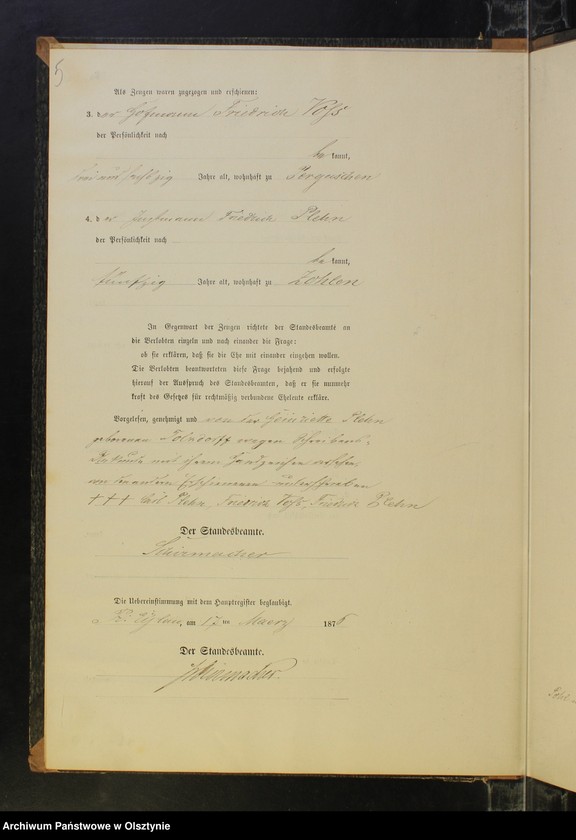 5
Als Zeugen waren zugezogen und erschienen:
3. der Hofmann Friedrich Voß
der Persönlichkeit nach
bekannt,
Jahre alt, wohnhaft zu Perguschen
4. der Friedrich Plehn
der Persönlichkeit nach
bekannt,
fünfzig Jahre alt, wohnhaft zu Zohlen
In Gegenwart der Zeugen richtete der Standesbeamte an
die Verlobten einzeln und nach einander die Frage:
ob sie erklären, daß sie die Ehe mit einander eingehen wollen.
Die Verlobten beantworteten diese Frage bejahend und erfolgte
hierauf der Ausspruch des Standesbeamten, daß er sie nunmehr
kraft des Gesetzes für rechtmäßig verbundene Eheleute erkläre.
Vorgelesen, genehmigt und von der Henriette Plehn
geborenen wegen Schreibens-
Unkunde mit ihrem Handzeichen versehen
von den andern Erschienenen unterschrieben
+++ Carl Plehn, Friedrich Voß, Friedrich Plehn
Der Standesbeamte.
Schirmacher
Die Uebereinstimmung mit dem Hauptregister beglaubigt.
Pr. Eylau, am 17 ten Maerz 1876
Der Standesbeamte.
Schirmacher
Archiwum Państwowe w Olsztynie